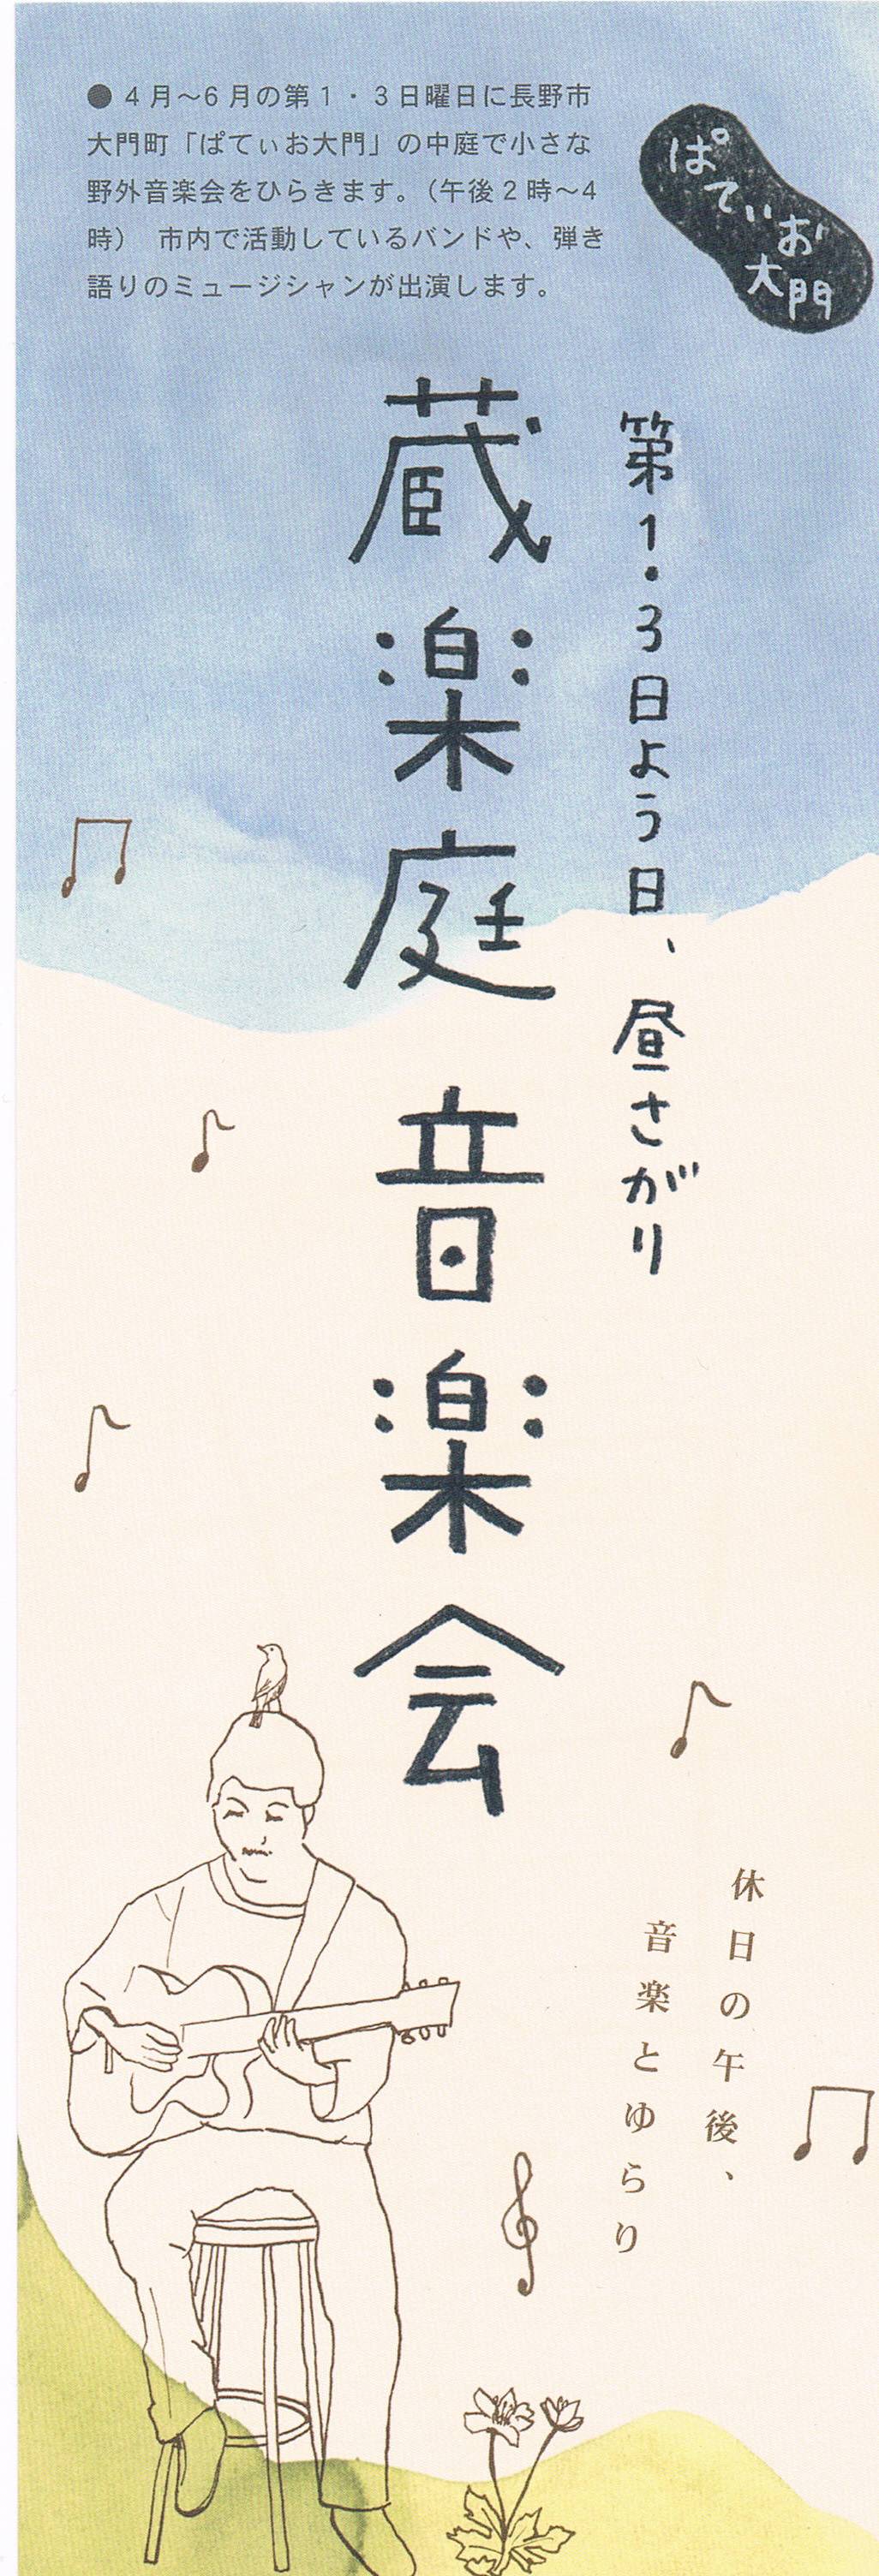 ● 4月～6月の第1・3日曜日に長野市
大門町「ぱてぃお大門」の中庭で小さな
野外音楽会をひらきます。（午後2時～4
時）　市内で活動しているバンドや、弾き
語りのミュージシャンが出演します。
ぱてぃお
大門
第1・3日よう日、昼さがり
蔵楽庭 音楽会
休日の午後、
音楽とゆらり